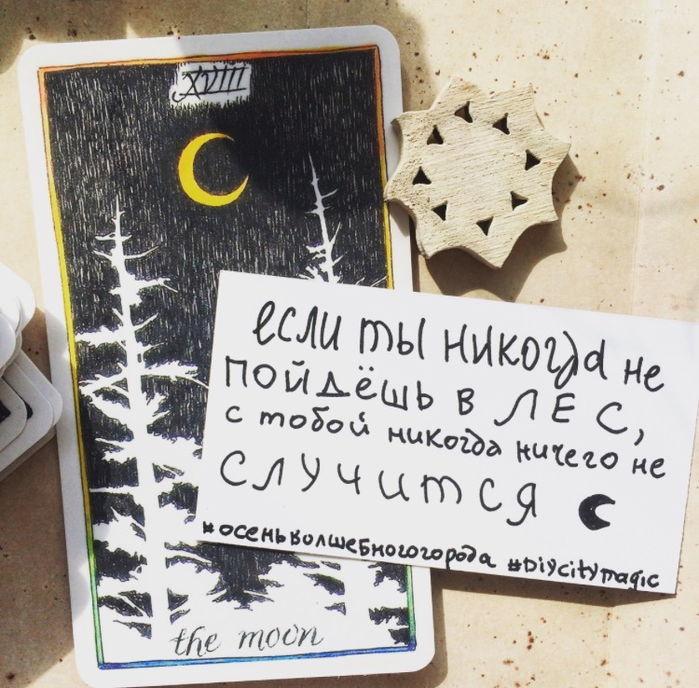 XVIII
если ты никогда не
пойдёшь в ЛЕС,
с тобой никогда ничего не
случится
#осеньволшебногогорода #Diycitymagic
the moon